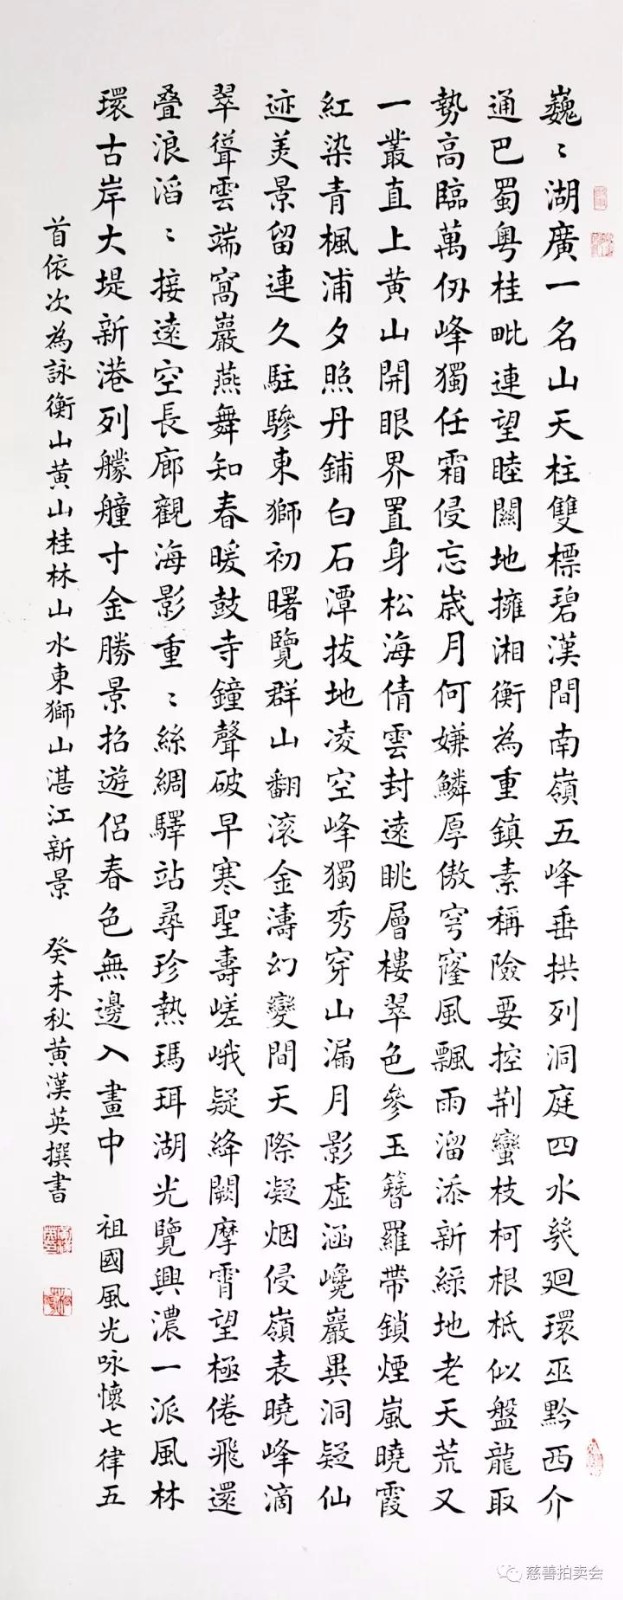 巍〻湖廣一名山天柱雙標碧漢間南嶺五峰垂拱列洞庭四水幾迴環巫黔西介
通巴蜀粵桂毗連望睦關地擁湘衡為重鎮素稱險要控荆蠻枝柯根柢似盤龍取
勢高臨萬仞峰獨任霜侵忘歲月何嫌鱗厚傲穹窿風飄雨溜添新綠地老天荒又
一叢直上黄山開眼界置身松海倩雲封遠眺層樓翠色參玉簪羅帶鎖煙嵐曉霞
紅染青楓浦夕照丹鋪白石潭拔地凌空峰獨秀穿山漏月影虛涵巉巖異洞疑仙
迹美景留連久駐驂東獅初曙覽群山翻滚金濤幻變間天際凝烟侵嶺表曉峰滴
翠聳雲端窩巖燕舞知春暖鼓寺鐘聲破早寒聖壽嵯峨疑絳闕摩霄望極倦飛還
叠浪滔〻接遠空長廊觀海影重〻絲綢驛站尋珍熱瑪珥湖光覽興濃一派風林
環古岸大堤新港列艨艟寸金勝景招遊侶春色無邊入畫中 祖國風光咏懷七律五
首依次為詠衡山黄山桂林山水東獅山湛江新景 癸未秋黄漢英撰書
慈善拍卖会